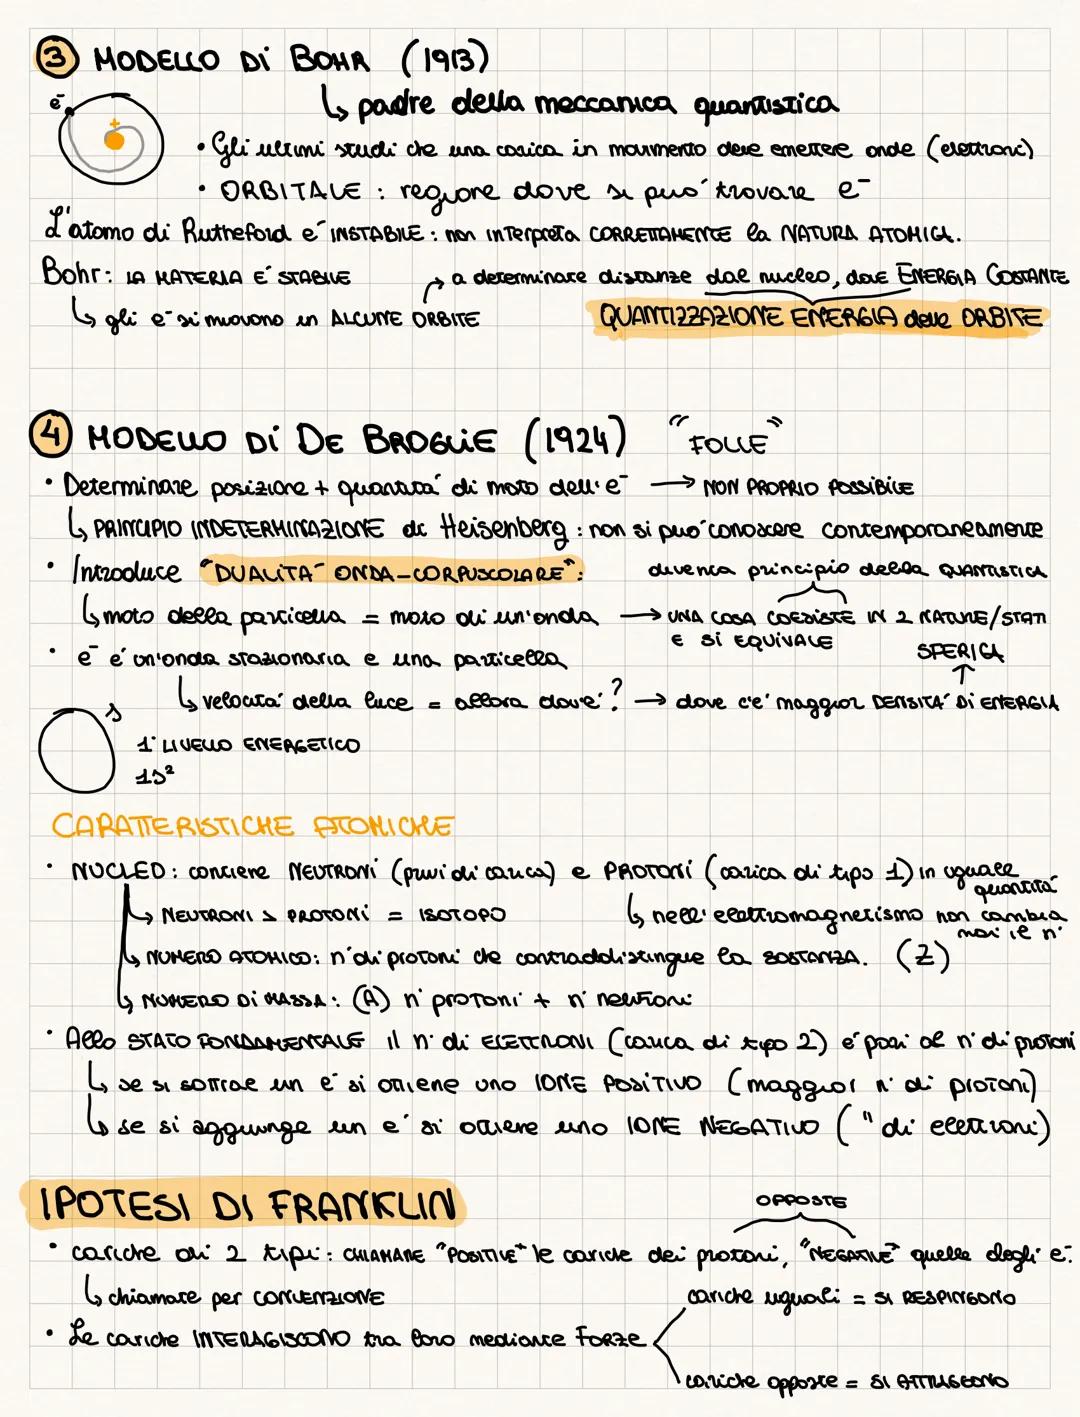 3 MODELLO Di BOHR (1913)
↳ padre della meccanica quantistica
e⁻
+
• Gli ultimi studi che una carica in movimento deve emettere onde (elettroni)
• ORBITALE : regione dove si puo' trovare e⁻
L'atomo di Rutheford e' INSTABILE : non interpreta CORRETTAMENTE la NATURA ATOMICA.
Bohr: LA MATERIA E' STABILE → a determinate distanze dal nucleo, dove ENERGIA COSTANTE
↳ gli e⁻ si muovono in ALCUNE ORBITE QUANTIZZAZIONE ENERGIA delle ORBITE
4 MODELLO Di DE BROGLiE (1924) "FOLLE"
• Determinare posizione + quantita' di moto dell'e⁻ → NON PROPRIO POSSIBILE
↳ PRINCIPIO INDETERMINAZIONE di Heisenberg : non si puo' conoscere contemporaneamente
• Introduce "DUALITA' ONDA-CORPUSCOLARE": diventa principio della QUANTISTICA
↳ moto della particella = moto di un'onda → UNA COSA COESISTE IN 2 NATURE/STATI
E SI EQUIVALE
• e⁻ e' un'onda stazionaria e una particella SFERICA
↳ velocita' della luce = allora dov'e'? → dove c'e' maggior DENSITA' Di ENERGIA
s
1° LIVELLO ENERGETICO
1s²
CARATTERISTICHE ATOMICHE
• NUCLEO : contiene NEUTRONi (privi di carica) e PROTONi (carica di tipo 1) in uguale quantita'
↳ NEUTRONI > PROTONi = ISOTOPO ↳ nell'elettromagnetismo non cambia mai il n°
↳ NUMERO ATOMICO: n° di protoni che contraddistingue la SOSTANZA. (Z)
↳ NUMERO Di MASSA : (A) n° protoni + n° neutroni
• Allo STATO FONDAMENTALE il n° di ELETTRONI (carica di tipo 2) e' pari al n° di protoni
↳ se si sottrae un e⁻ si ottiene uno IONE POSITIVO (maggior n° di protoni)
↳ se si aggiunge un e⁻ si ottiene uno IONE NEGATIVO ( " di elettroni)
IPOTESI DI FRANKLIN
OPPOSTE
• cariche di 2 tipi : CHIAMARE "POSITIVE" le cariche dei protoni, "NEGATIVE" quelle degli e⁻.
↳ chiamate per CONVENZIONE cariche uguali = SI RESPINGONO
• Le cariche INTERAGISCONO tra loro mediante FORZE
cariche opposte = SI ATTRAGGONO